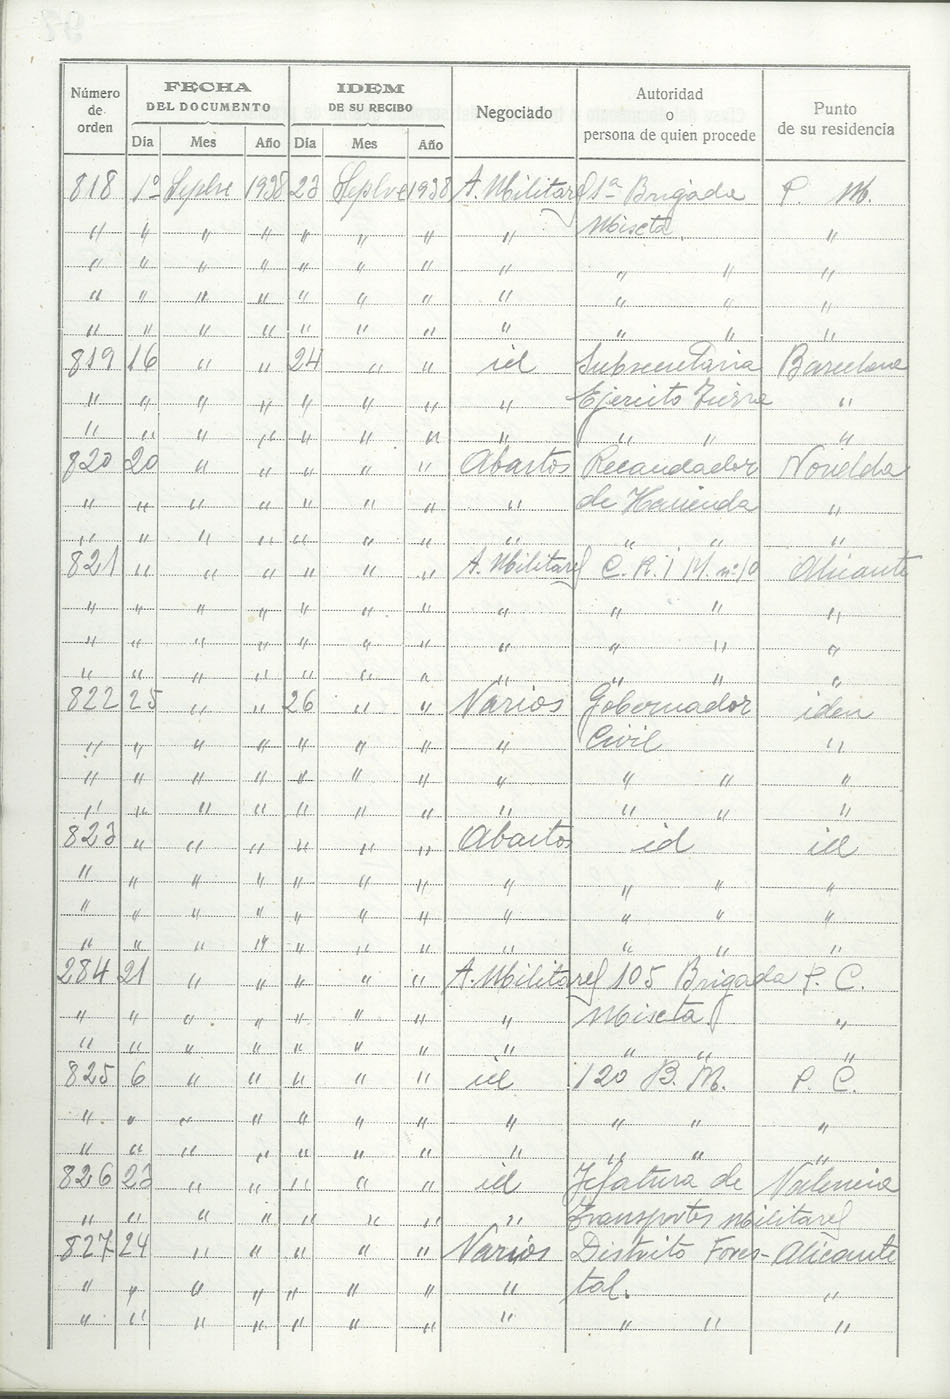 Número de orden | FECHA DEL DOCUMENTO | IDEM DE SU RECIBO | Negociado | Autoridad o persona de quien procede | Punto de su residencia
Día | Mes | Año | Día | Mes | Año
818 1º Sepbre 1938 23 Sepbre 1938 A. Militares 1ª Brigada P. M.
" " " " " " " " Mixta "
" " " " " " " " " " "
" " " " " " " " " " "
" " " " " " " " " " "
819 16 " " 24 " " id Subsecretaria Barcelona
" " " " " " " " Ejercito Tierra "
" " " " " " " " " " "
820 20 " " " " " Abastos Recaudador Novelda
" " " " " " " " de Hacienda "
" " " " " " " " " " "
821 " " " " " " A. Militares C. R. i M. nº 10 Alicante
" " " " " " " " " " "
" " " " " " " " " " "
" " " " " " " " " " "
822 25 " " 26 " " Varios Gobernador iden
" " " " " " " " Civil "
" " " " " " " " " " "
" " " " " " " " " " "
823 " " " " " " Abastos id id
" " " " " " " " " " "
" " " " " " " " " " "
" " " " " " " " " " "
284 21 " " " " " A. Militares 105 Brigada P. C.
" " " " " " " " Mixta "
" " " " " " " " " " "
825 6 " " " " " id 120 B. M. P. C.
" " " " " " " " " " "
" " " " " " " " " " "
826 23 " " " " " id Jefatura de Valencia
" " " " " " " " Transportes Militares
827 24 " " " " " Varios Distrito Fores- Alicante
" " " " " " " " tal. "
" " " " " " " " " " "